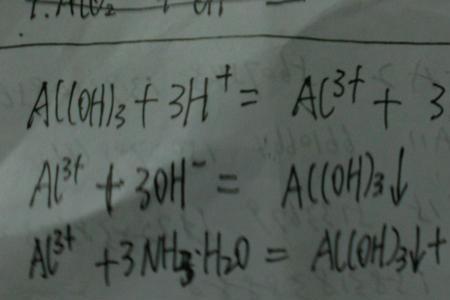 Al(OH)₃ + 3H⁺ = Al³⁺ + 3
Al³⁺ + 3OH⁻ = Al(OH)₃↓
Al³⁺ + 3NH₃·H₂O = Al(OH)₃↓+